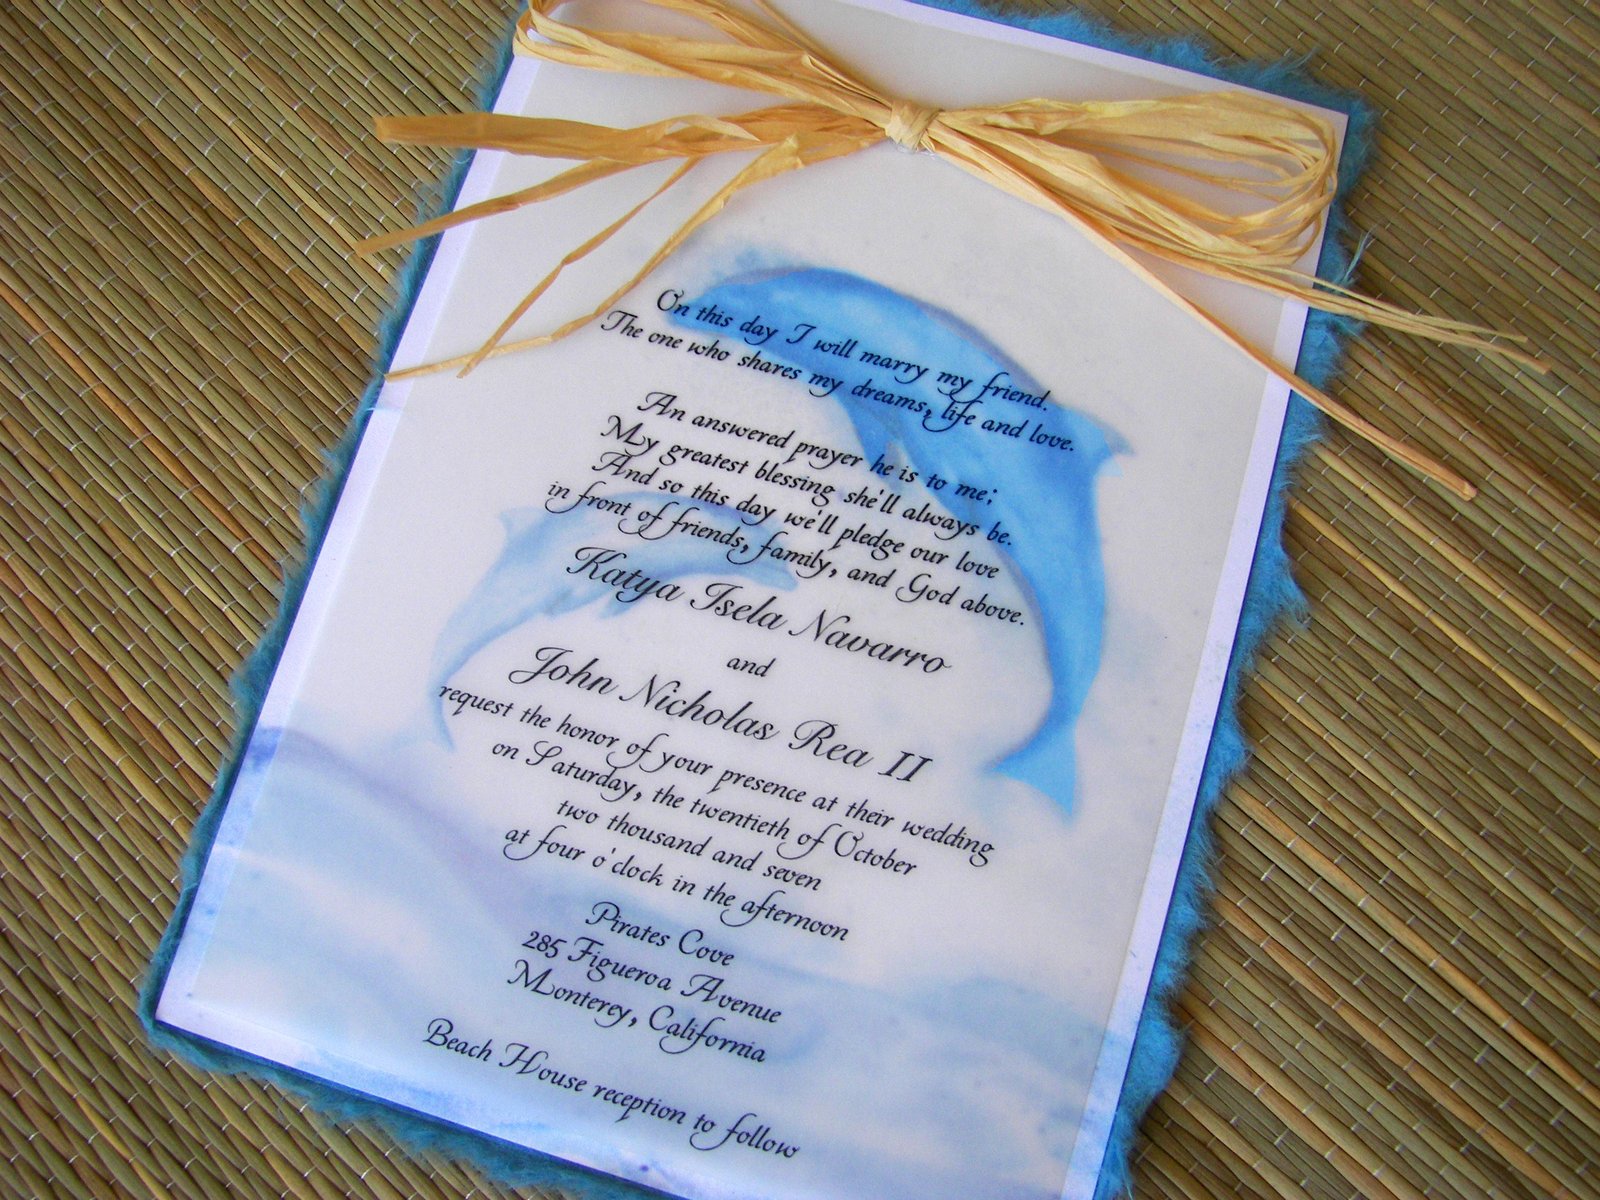 On this day I will marry my friend.
The one who shares my dreams, life and love.
An answered prayer he is to me;
My greatest blessing she'll always be.
And so this day we'll pledge our love
in front of friends, family, and God above.
Katya Isela Navarro
and
John Nicholas Rea II
request the honor of your presence at their wedding
on Saturday, the twentieth of October
two thousand and seven
at four o'clock in the afternoon
Pirates Cove
285 Figueroa Avenue
Monterey, California
Beach House reception to follow